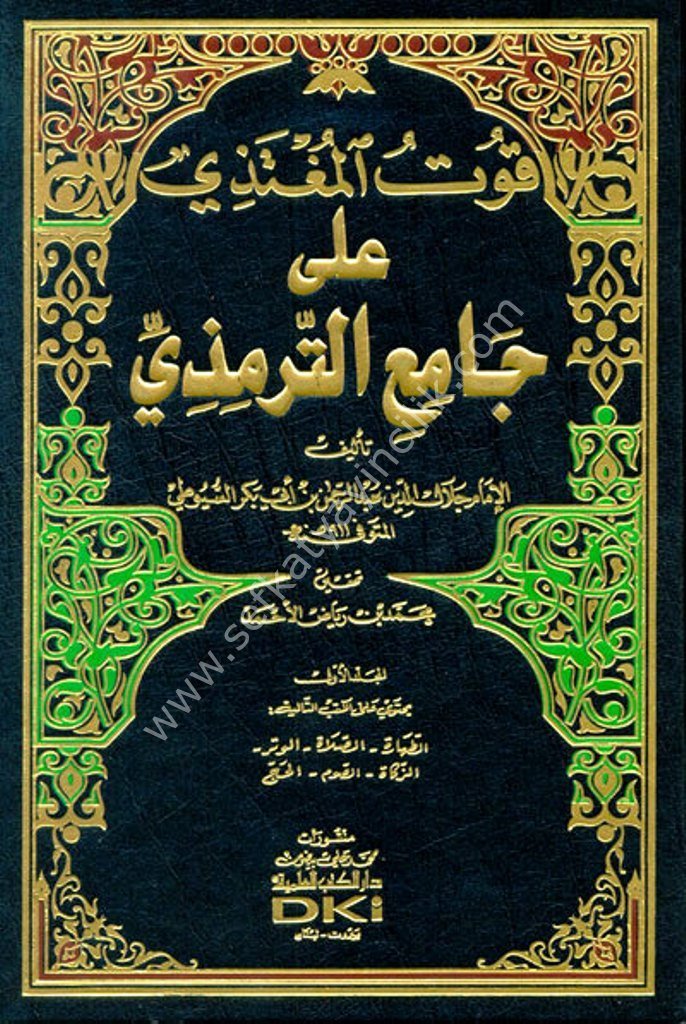 قُوتُ ٱلمُغْتَذِي
على
جَامِعِ التِّرمِذِيِّ
تأليف
الإمام جلال الدين عبد الرحمن بن أبي بكر السيوطي
المتوفى ٩١١ هـ
تحقيق
محمد بن رياض الأحمد
المجلد الأول
يحتوي على الكتب التالية:
الطهارة - الصلاة - الوتر -
الزكاة - الصوم - الحج
منشورات
محمد علي بيضون
دار الكتب العلمية
DKi
بيروت - لبنان
www.sefkatyayincilik.com